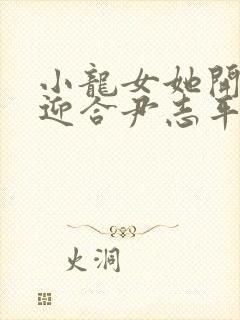 小龍女她開
迎合尹志平
火洞